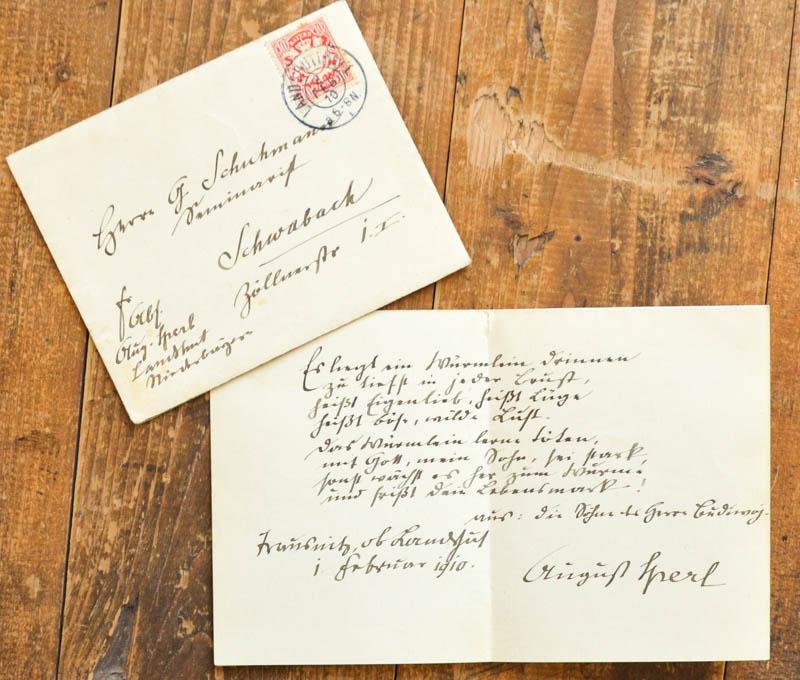 Herrn G. Schuhmann
Seminarist
Schwabach
Zöllnerstr I.
Abs.
Aug. Sperl
Landshut
Niederbayern
LANDSHUT
10
Es liegt ein Würmlein drinnen
zu tiefst in jeder Brust,
heißt Eigenlieb, heißt Lüge
heißt böse, wilde Lust.
Das Würmlein lerne töten,
mit Gott, mein Sohn, sei stark,
sonst wächst es her zum Wurme
und frißt dein Lebensmark!
aus: die Söhne des Herrn Budiwoj.
Trausnitz, ob Landshut
1. Februar 1910.
August Sperl